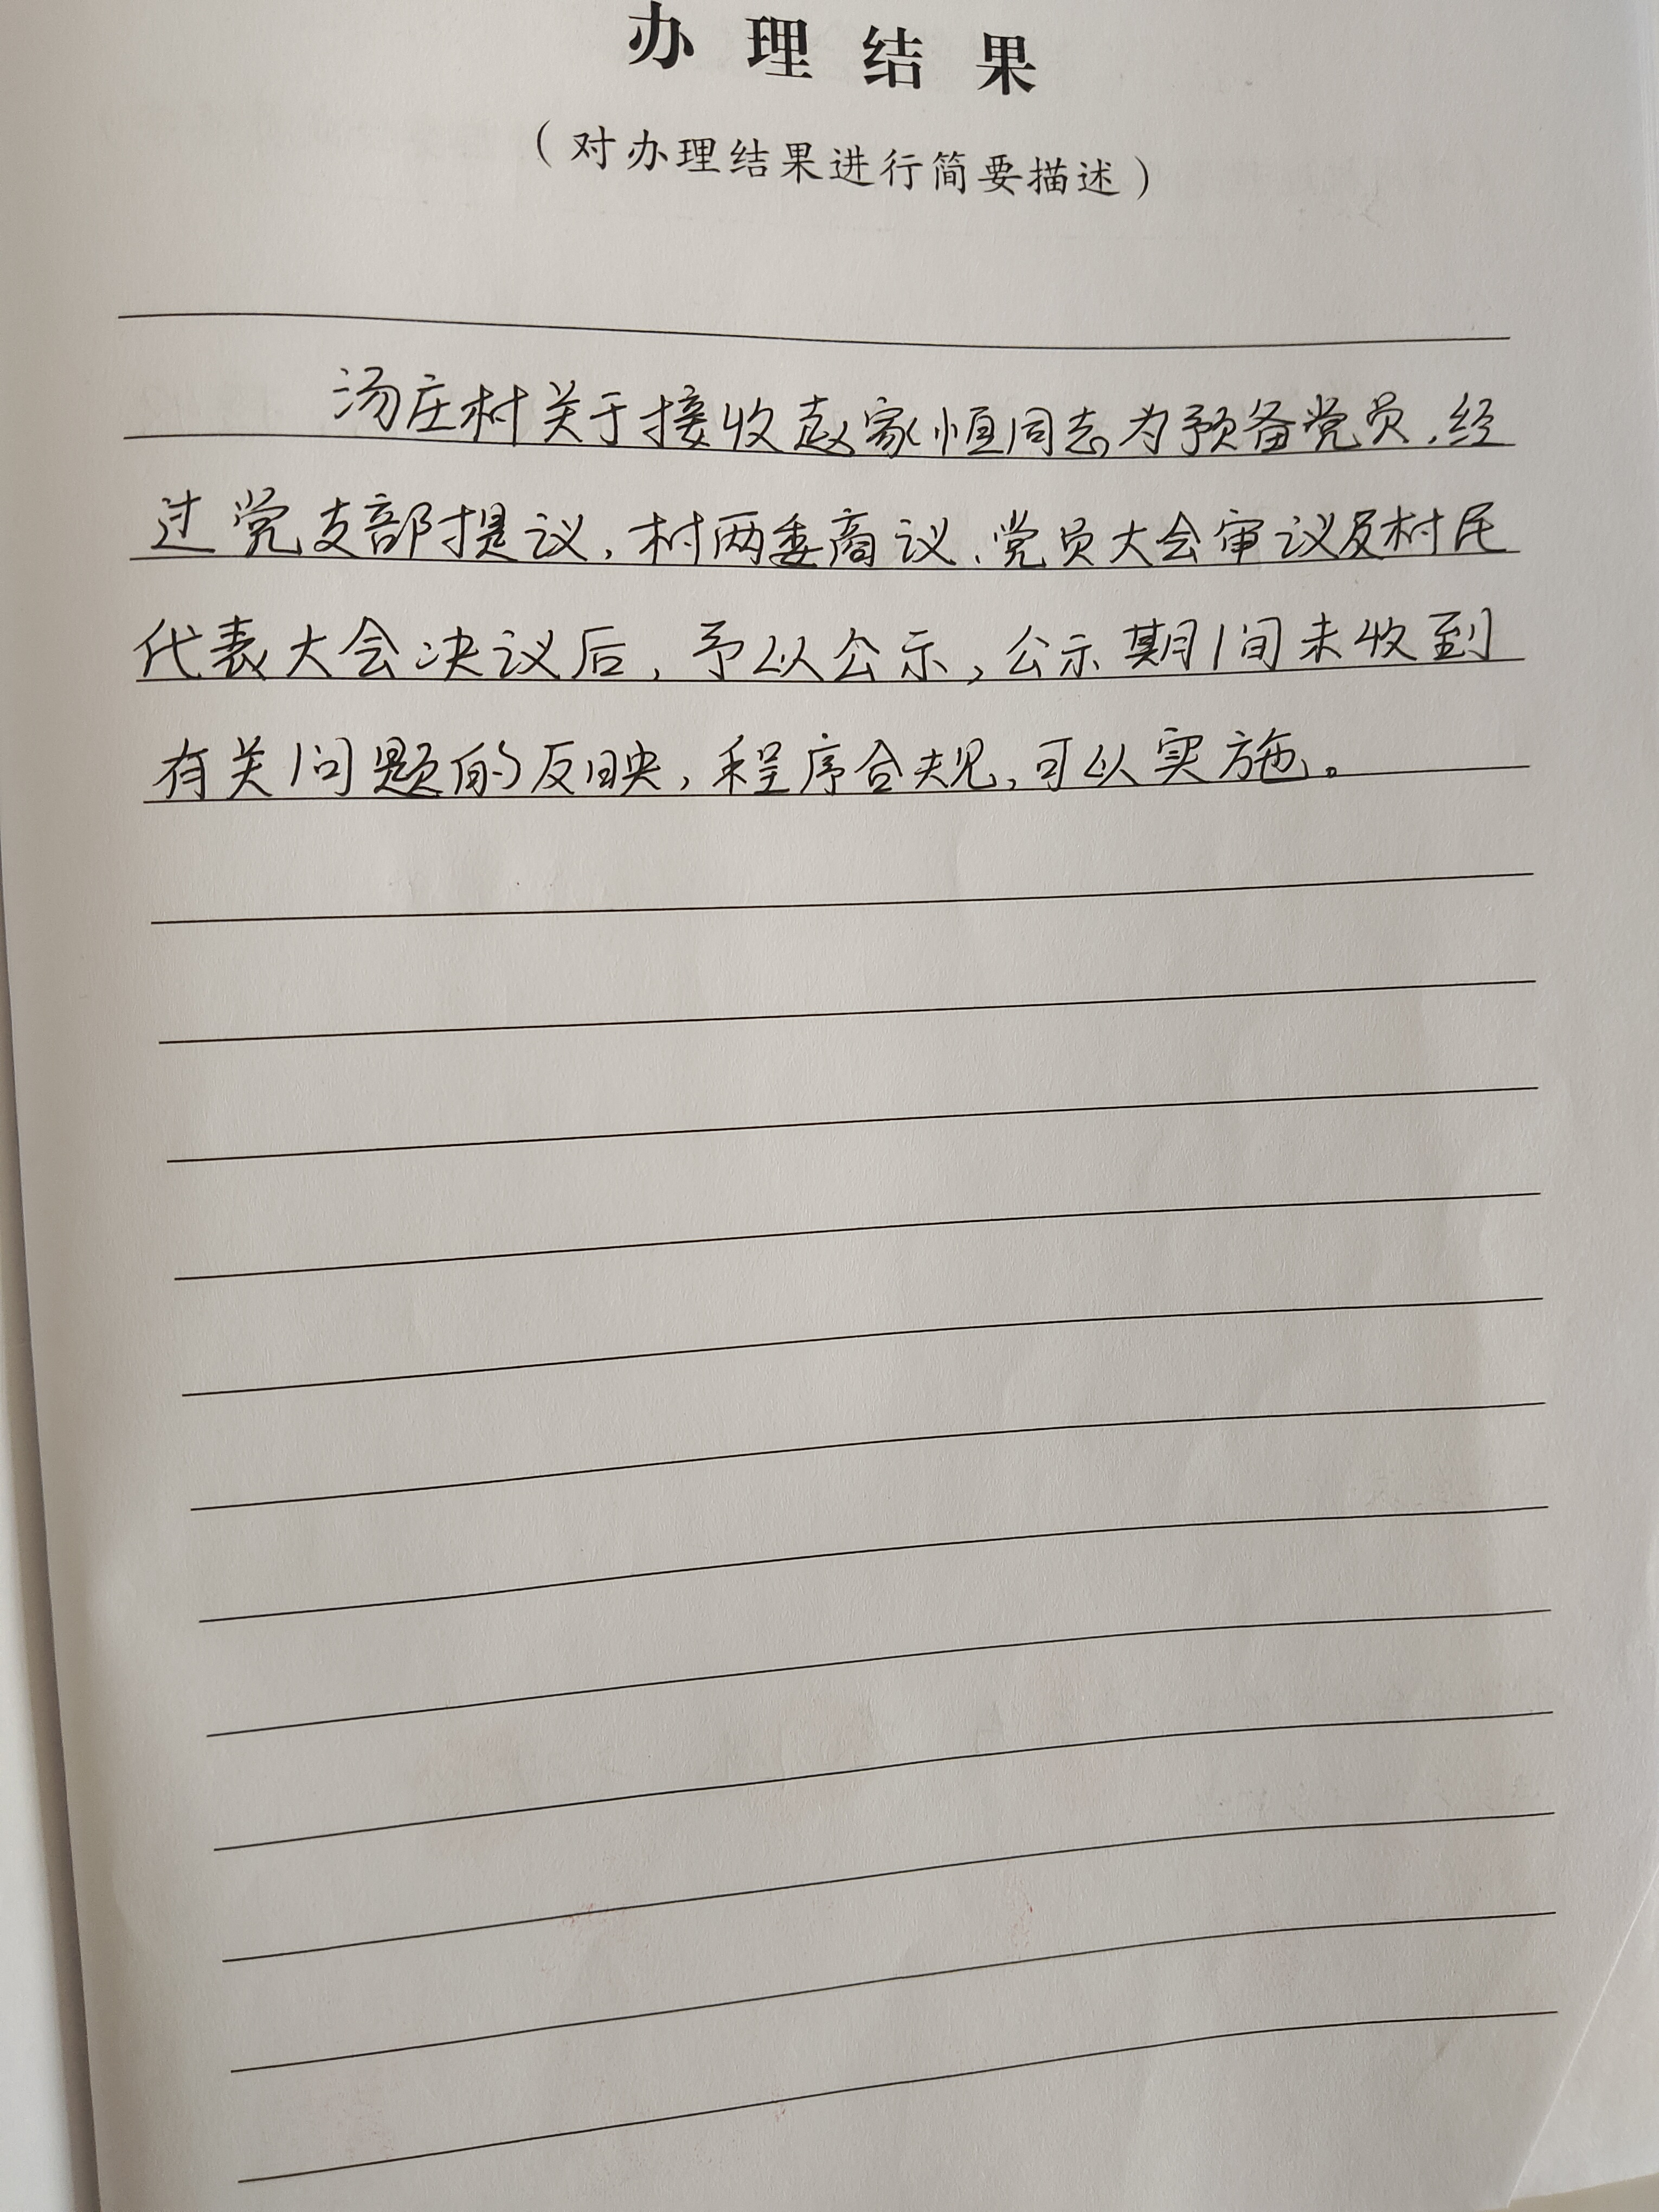 办理结果
（对办理结果进行简要描述）
汤庄村关于接收赵家恒同志为预备党员,经
过党支部提议,村两委商议、党员大会审议及村民
代表大会决议后,予以公示,公示期间未收到
有关问题的反映,程序合规,可以实施。